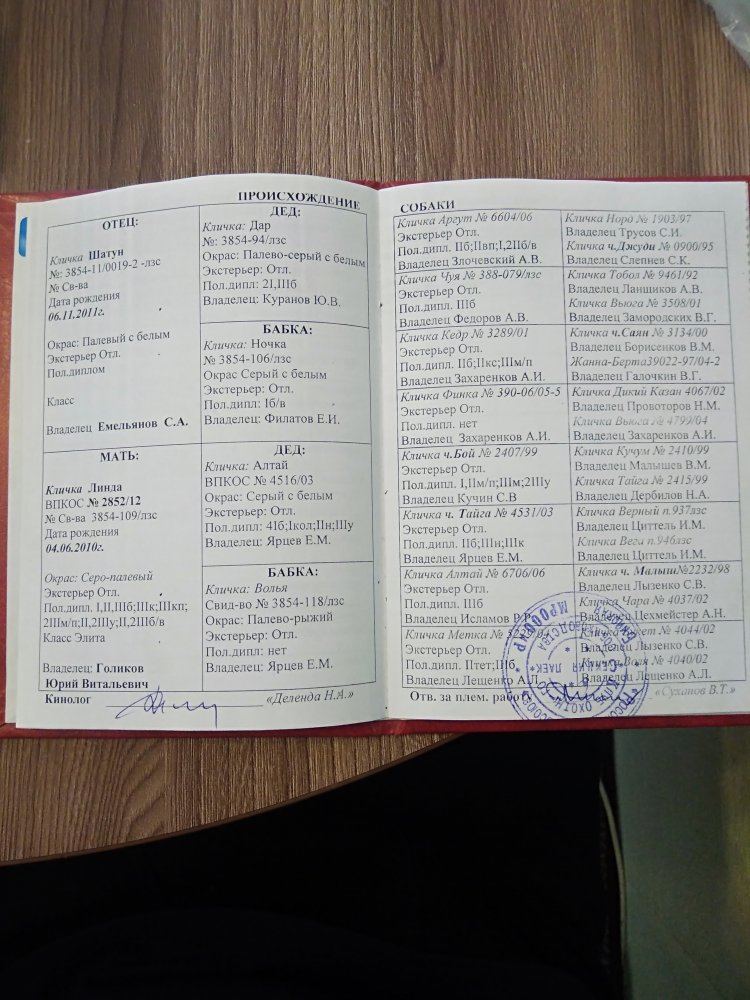 ПРОИСХОЖДЕНИЕ
ОТЕЦ:
Кличка Шатун
№: 3854-11/0019-2 -лзс
№ Св-ва
Дата рождения
06.11.2011г.
Окрас: Палевый с белым
Экстерьер Отл.
Пол.диплом
Класс
Владелец Емельянов С.А.
ДЕД:
Кличка: Дар
№: 3854-94/лзс
Окрас: Палево-серый с белым
Экстерьер: Отл.
Пол.дипл: 2I,IIIб
Владелец: Куранов Ю.В.
БАБКА:
Кличка: Ночка
№ 3854-106/лзс
Окрас Серый с белым
Экстерьер: Отл.
Пол.дипл: Iб/в
Владелец: Филатов Е.И.
МАТЬ:
Кличка Линда
ВПКОС № 2852/12
№ Св-ва 3854-109/лзс
Дата рождения
04.06.2010г.
Окрас: Серо-палевый
Экстерьер Отл.
Пол.дипл. I,II,IIIб;IIIк;IIIкп;
2IIIм/п;II,2IIIу;II,2IIIб/в
Класс Элита
Владелец: Голиков
Юрий Витальевич
ДЕД:
Кличка: Алтай
ВПКОС № 4516/03
Окрас: Серый с белым
Экстерьер: Отл.
Пол.дипл: 4Iб;Iкол;IIн;IIIу
Владелец: Ярцев Е.М.
БАБКА:
Кличка: Волья
Свид-во № 3854-118/лзс
Окрас: Палево-рыжий
Экстерьер: Отл.
Пол.дипл: нет
Владелец: Ярцев Е.М.
Кинолог «Деленда Н.А.»
СОБАКИ
Кличка Аргут № 6604/06
Экстерьер Отл.
Пол.дипл. IIб;IIвп;I,2IIб/в
Владелец Злочевский А.В.
Кличка Норд № 1903/97
Владелец Трусов С.И.
Кличка ч.Джуди № 0900/95
Владелец Слепнев С.К.
Кличка Чуя № 388-079/лзс
Экстерьер Отл.
Пол.дипл. IIIб
Владелец Федоров А.В.
Кличка Тобол № 9461/92
Владелец Ланщиков А.В.
Кличка Вьюга № 3508/01
Владелец Замородских В.Г.
Кличка Кедр № 3289/01
Экстерьер Отл.
Пол.дипл. IIб;IIкс;IIIм/п
Владелец Захаренков А.И.
Кличка ч.Саян № 3134/00
Владелец Борисенков В.М.
Жанна-Берта39022-97/04-2
Владелец Галочкин В.Г.
Кличка Финка № 390-06/05-5
Экстерьер Отл.
Пол.дипл. нет
Владелец Захаренков А.И.
Кличка Дикий Казан 4067/02
Владелец Провоторов Н.М.
Кличка Вьюга № 4799/04
Владелец Захаренков А.И.
Кличка ч.Бой № 2407/99
Экстерьер Отл.
Пол.дипл. I,IIм/п;IIIм;2IIIу
Владелец Кучин С.В
Кличка Кучум № 2410/99
Владелец Малышев В.М.
Кличка Тайга № 2415/99
Владелец Дербилов Н.А.
Кличка ч. Тайга № 4531/03
Экстерьер Отл.
Пол.дипл. IIб;IIн;IIIк
Владелец Ярцев Е.М.
Кличка Верный п.937лзс
Владелец Циттель И.М.
Кличка Вега п.946лзс
Владелец Циттель И.М.
Кличка Алтай № 6706/06
Экстерьер Отл.
Пол.дипл. IIIб
Владелец Исламов Р.Р.
Кличка ч. Малыш№2232/98
Владелец Лызенко С.В.
Кличка Чара № 4037/02
Владелец Цехмейстер А.Н.
Кличка Метка №
Экстерьер Отл.
Пол.дипл. IIтет;IIIб
Владелец Лещенко А.Л.
Кличка № 4044/02
Владелец Лызенко С.В.
Кличка Воля № 4040/02
Владелец Лещенко А.Л.
Отв. за плем. работу «Суханов В.Т.»
МРООСАР
*СЕКЦИЯ ЛАЕК*